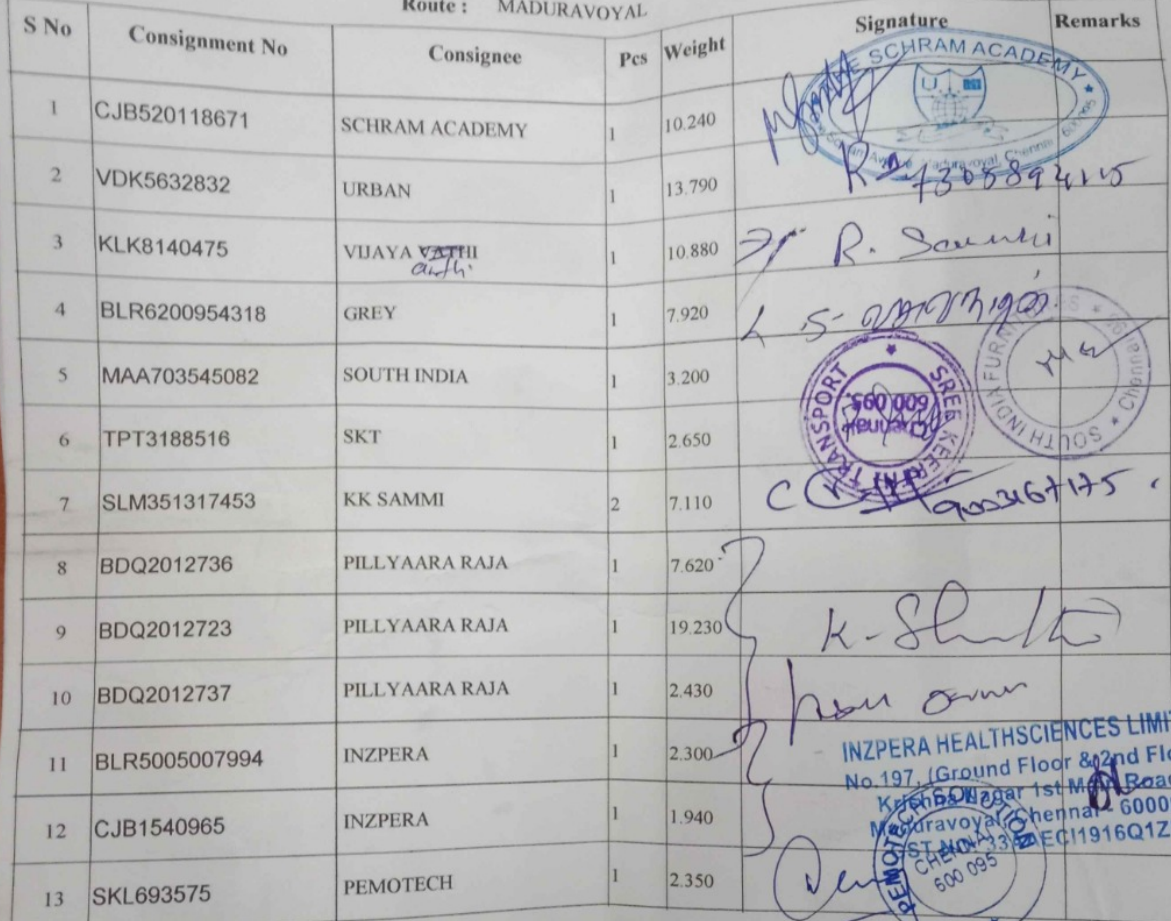 Route : MADURAVOYAL
S No Consignment No Consignee Pcs Weight Signature Remarks
1 CJB520118671 SCHRAM ACADEMY 1 10.240
THE SCHRAM ACADEMY
Maduravoyal, Chennai 600 095
2 VDK5632832 URBAN 1 13.790
3 KLK8140475 VIJAYA VATHI 1 10.880 R.
4 BLR6200954318 GREY 1 7.920
5 MAA703545082 SOUTH INDIA 1 3.200
SOUTH INDIA FURNITURES Chennai-95
6 TPT3188516 SKT 1 2.650
SREE KEERTHI TRANSPORT
Chennai
600 095
7 SLM351317453 KK SAMMI 2 7.110 9003167175
8 BDQ2012736 PILLYAARA RAJA 1 7.620
9 BDQ2012723 PILLYAARA RAJA 1 19.230
10 BDQ2012737 PILLYAARA RAJA 1 2.430
11 BLR5005007994 INZPERA 1 2.300
INZPERA HEALTHSCIENCES LIMI
No.197, (Ground Floor & 2nd Flo
Krishna Nagar 1st Main Roa
Maduravoyal, Chennai - 6000
12 CJB1540965 INZPERA 1 1.940
13 SKL693575 PEMOTECH 1 2.350
PEMOTECH
CHENNAI
600 095